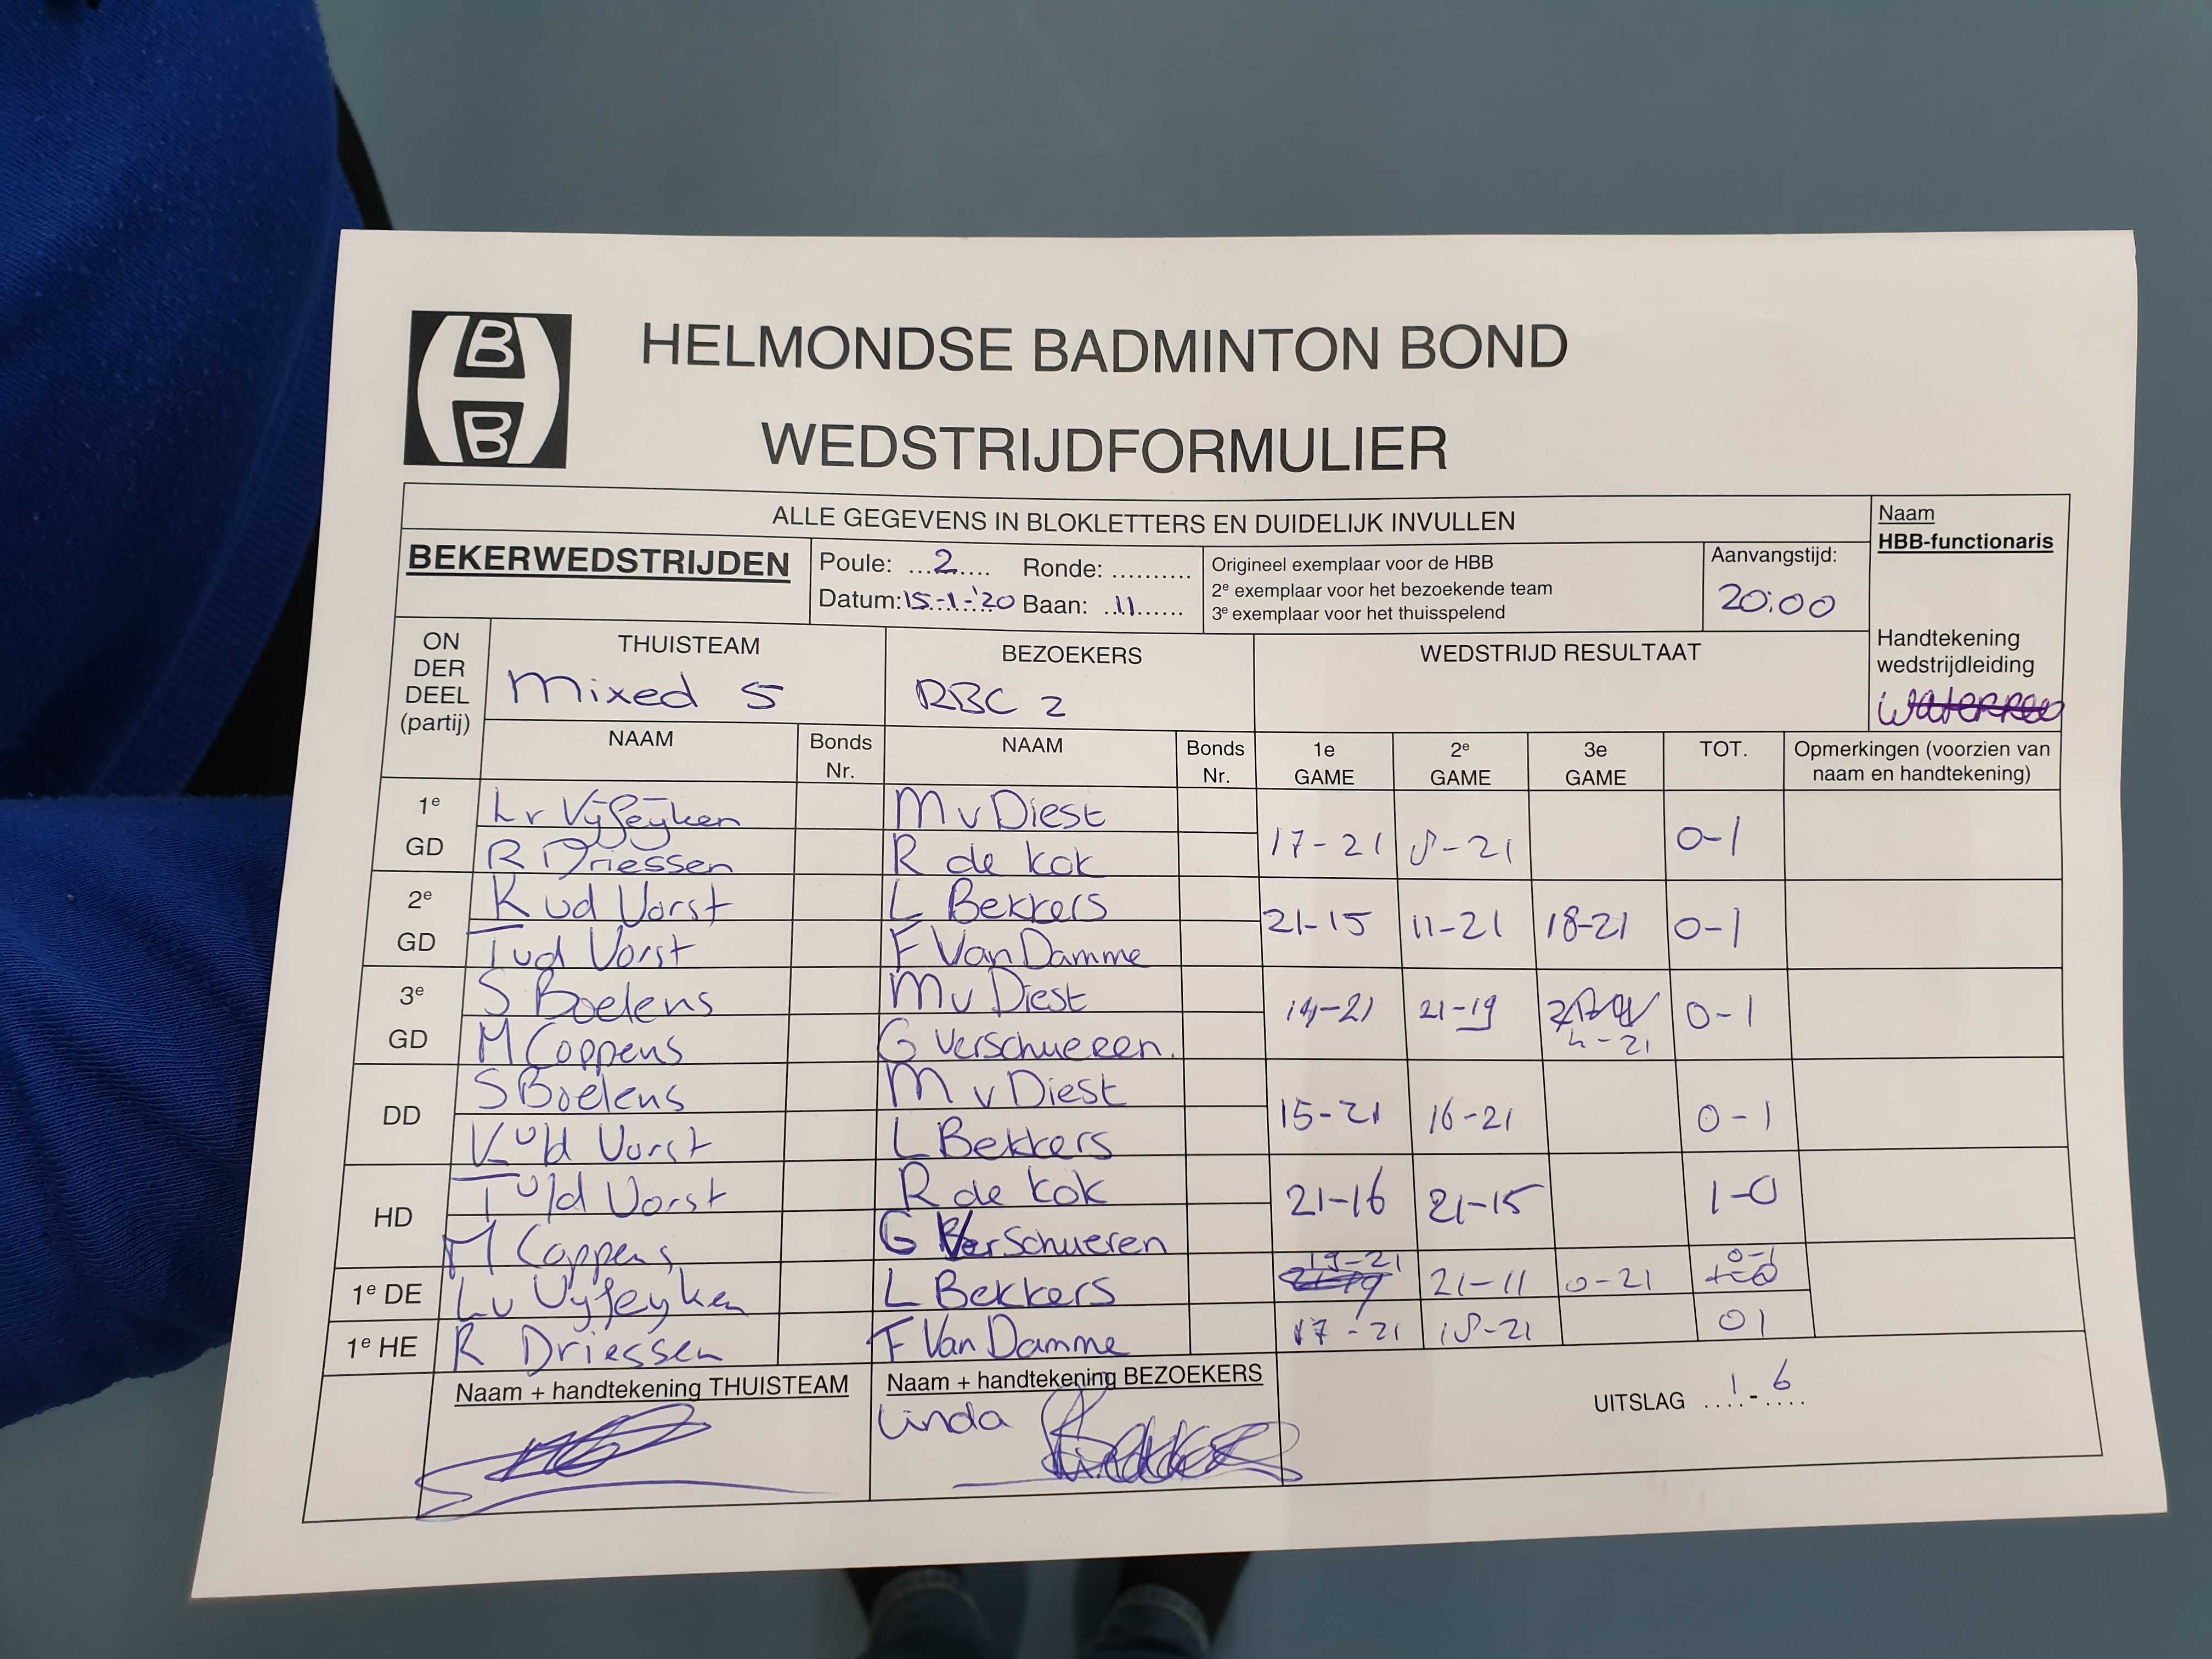 HBB
HELMONDSE BADMINTON BOND
WEDSTRIJDFORMULIER
ALLE GEGEVENS IN BLOKLETTERS EN DUIDELIJK INVULLEN
Naam
HBB-functionaris
BEKERWEDSTRIJDEN
Poule: ...2..... Ronde: ..........
Datum: 15-1-'20 Baan: ..11......
Origineel exemplaar voor de HBB
2e exemplaar voor het bezoekende team
3e exemplaar voor het thuisspelend
Aanvangstijd:
20:00
Handtekening
wedstrijdleiding
ON
DER
DEEL
(partij)
THUISTEAM
Mixed 5
BEZOEKERS
RBC 2
WEDSTRIJD RESULTAAT
NAAM Bonds Nr. NAAM Bonds Nr. 1e GAME 2e GAME 3e GAME TOT. Opmerkingen (voorzien van naam en handtekening)
1e GD
L v Vijfeijken M v Diest
R Driessen R de Kok
17-21 8-21 0-1
2e GD
K vd Vorst L Bekkers
T vd Vorst F Van Damme
21-15 11-21 18-21 0-1
3e GD
S Boelens M v Diest
M Coppens G Verschueren.
14-21 21-19 0-1
DD
S Boelens M v Diest
K v/d Vorst L Bekkers
15-21 16-21 0-1
HD
T v/d Vorst R de Kok
M Coppens G Verschueren
21-16 21-15 1-0
1e DE L v Vyfeyken L Bekkers 19-21 21-11 0-21 0-1
1e HE R Driessen F Van Damme 17-21 18-21 01
Naam + handtekening THUISTEAM
Naam + handtekening BEZOEKERS
Linda
UITSLAG 1 - 6